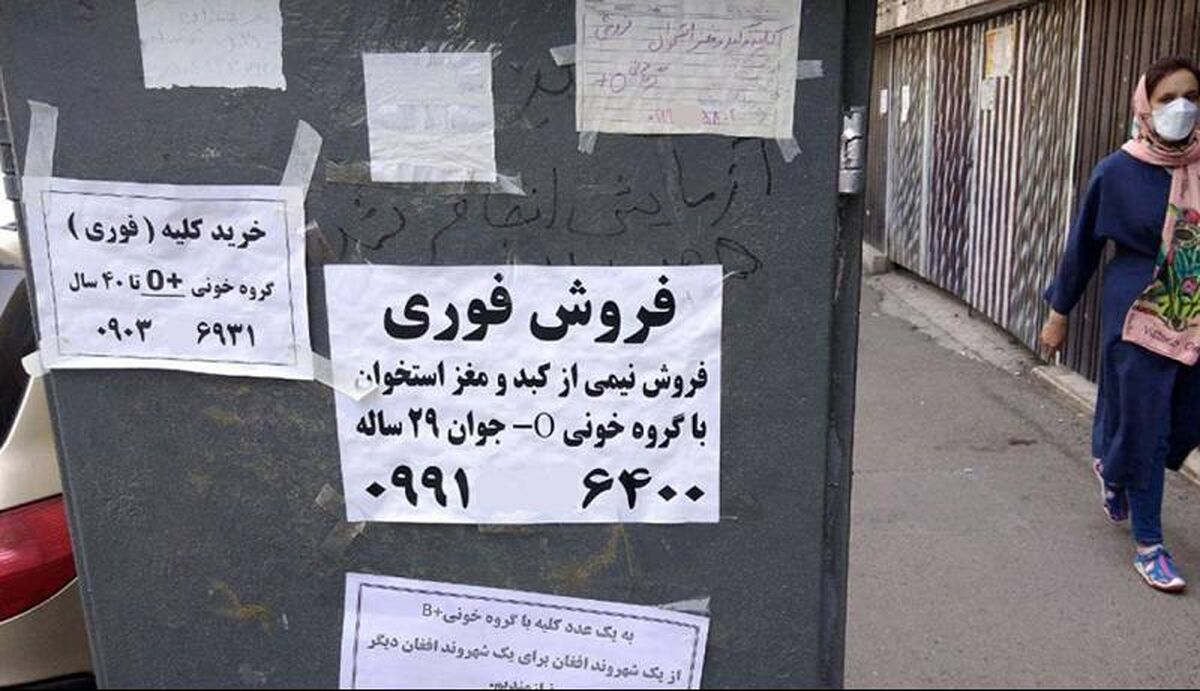 کلیه و کبد و مغز استخوان فروشی
O+
آزمایش انجام
خرید کلیه ( فوری )
گروه خونی O+ تا ۴۰ سال
۰۹۰۳ ۶۹۳۱
فروش فوری
فروش نیمی از کبد و مغز استخوان
با گروه خونی O- جوان ۲۹ ساله
۰۹۹۱ ۶۴۰۰
به یک عدد کلیه با گروه خونی B+
از یک شهروند افغان برای یک شهروند افغان دیگر
نیازمندیم.